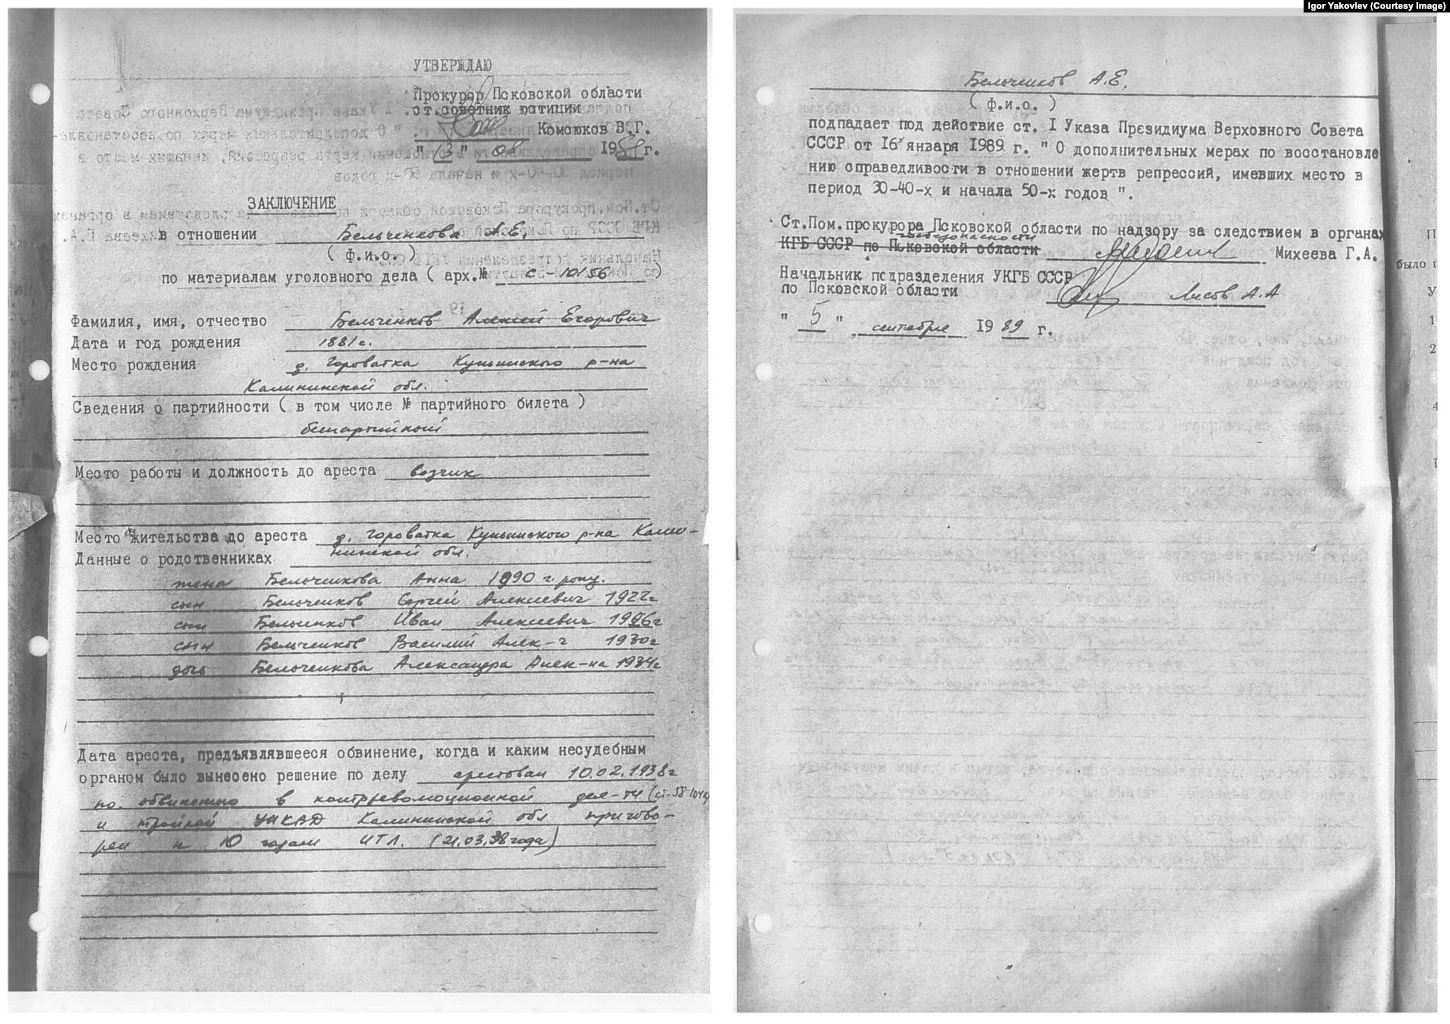 Igor Yakovlev (Courtesy Image)
УТВЕРЖДАЮ
Прокурор Псковской области
ст.советник юстиции
Комсюков В.Г.
"13" 198 г.
ЗАКЛЮЧЕНИЕ
в отношении Бельченкова А.Е.
( ф.и.о. )
по материалам уголовного дела ( арх.№ С-10156 )
Фамилия, имя, отчество Бельченков Алексей Егорович
Дата и год рождения 1881г.
Место рождения д. Гороватка Куньинского р-на
Калининской обл.
Сведения о партийности ( в том числе № партийного билета )
беспартийный
Место работы и должность до ареста возчик
Место жительства до ареста д. Гороватка Куньинского р-на Кали-
Данные о родственниках нинской обл.
жена Бельченкова Анна 1890 г. рожд.
сын Бельченков Сергей Алексеевич 1922г
сын Бельченков Иван Алексеевич 1926г
сын Бельченков Василий Алек-ч 1930г
дочь Бельченкова Александра Алек-на 1934г
Дата ареста, предъявлявшееся обвинение, когда и каким несудебным
органом было вынесено решение по делу арестован 10.02.1938г
по обвинению в контрреволюционной деят-ти (ст-58-10
и тройкой УНКВД Калининской обл пригово-
рен к 10 годам ИТЛ. (21.03.38года)
Бельченков А.Е.
( ф.и.о. )
подпадает под действие ст. I Указа Президиума Верховного Совета
СССР от 16 января 1989 г. " О дополнительных мерах по восстановле
нию справедливости в отношении жертв репрессий, имевших место в
период 30-40-х и начала 50-х годов ".
Ст.Пом.прокурора Псковской области по надзору за следствием в органах
госбезопасности
КГБ СССР по Псковской области Михеева Г.А.
Начальник подразделения УКГБ СССР
по Псковской области Лисов А.А
" 5 " сентября 1989 г.
было